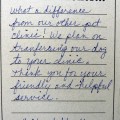 what a difference
from our other pet
clinic! We plan on
tranfersring our dog
to your clinic.
Thank you for your
friendly and helpful
service.